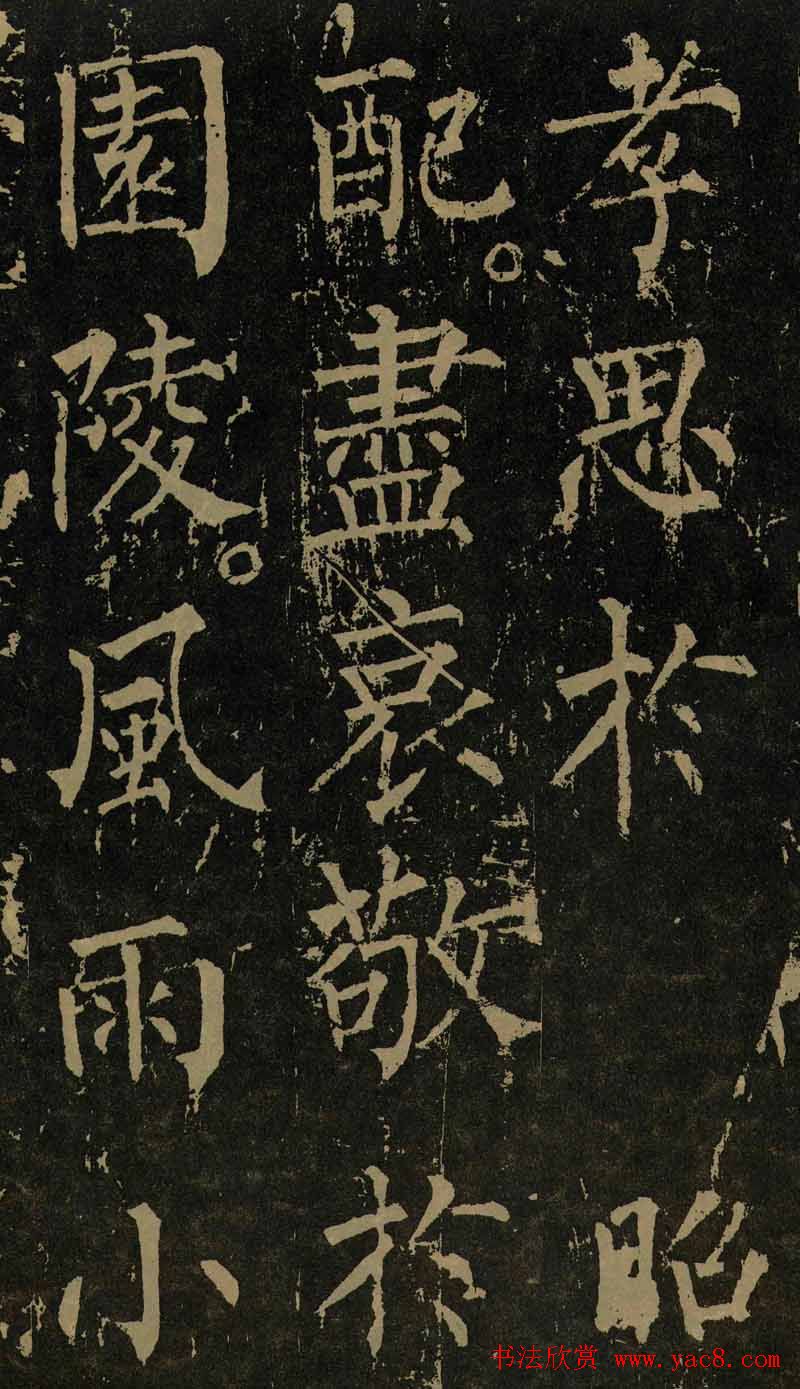 孝思於昭
配。盡哀敬於
園陵。風雨小
书法欣赏 www.yac8.com